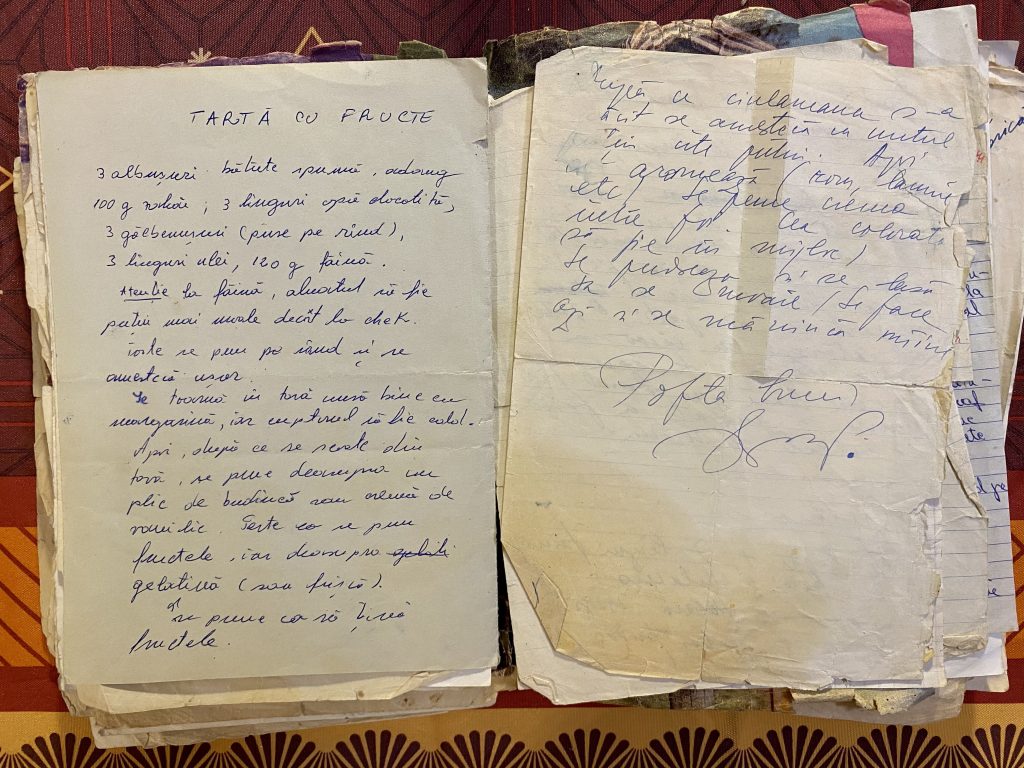 TARTĂ CU FRUCTE
3 albușuri bătute spumă, adaug
100 g zahăr, 3 linguri apă clocotită,
3 gălbenușuri (puse pe rînd),
3 linguri ulei, 120 g făină.
Atenție la făină, aluatul să fie
puțin mai moale decît la chek.
Toate se pun pe rînd și se
amestecă ușor.
Se toarnă în tavă unsă bine cu
margarină, iar cuptorul să fie cald.
Apoi, după ce se scoate din
tavă, se pune deasupra un
plic de budincă sau cremă de
vanilie. Peste ea se pun
fructele, iar deasupra
gelatină (sau frișcă).
Se pune ca să țină
fructele.
După ce ciulamaua s-a
răcit se amestecă cu untul
cîte puțin. Apoi
se aromează (rom, lămîie
etc). Se pune crema
între foi. Cea colorată
să fie în mijloc)
Se pudrează și se lasă
să se înmoaie (Se face
azi și se mănîncă mîine
Poftă bună